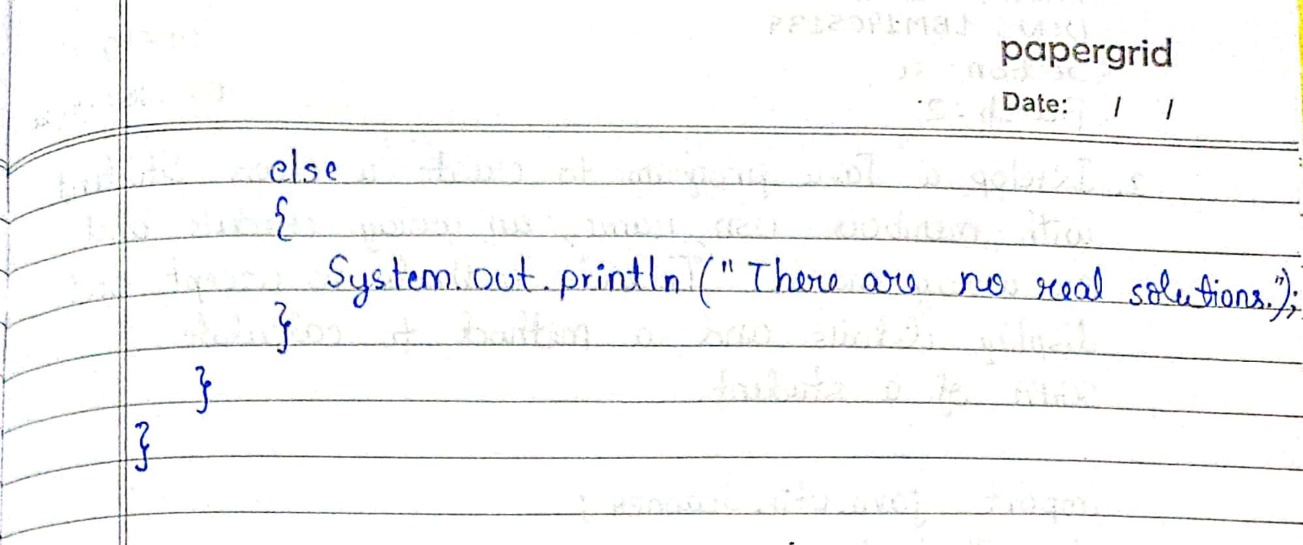 papergrid
Date: / /
else
{
System.out.println (" There are no real solutions.");
}
}
}